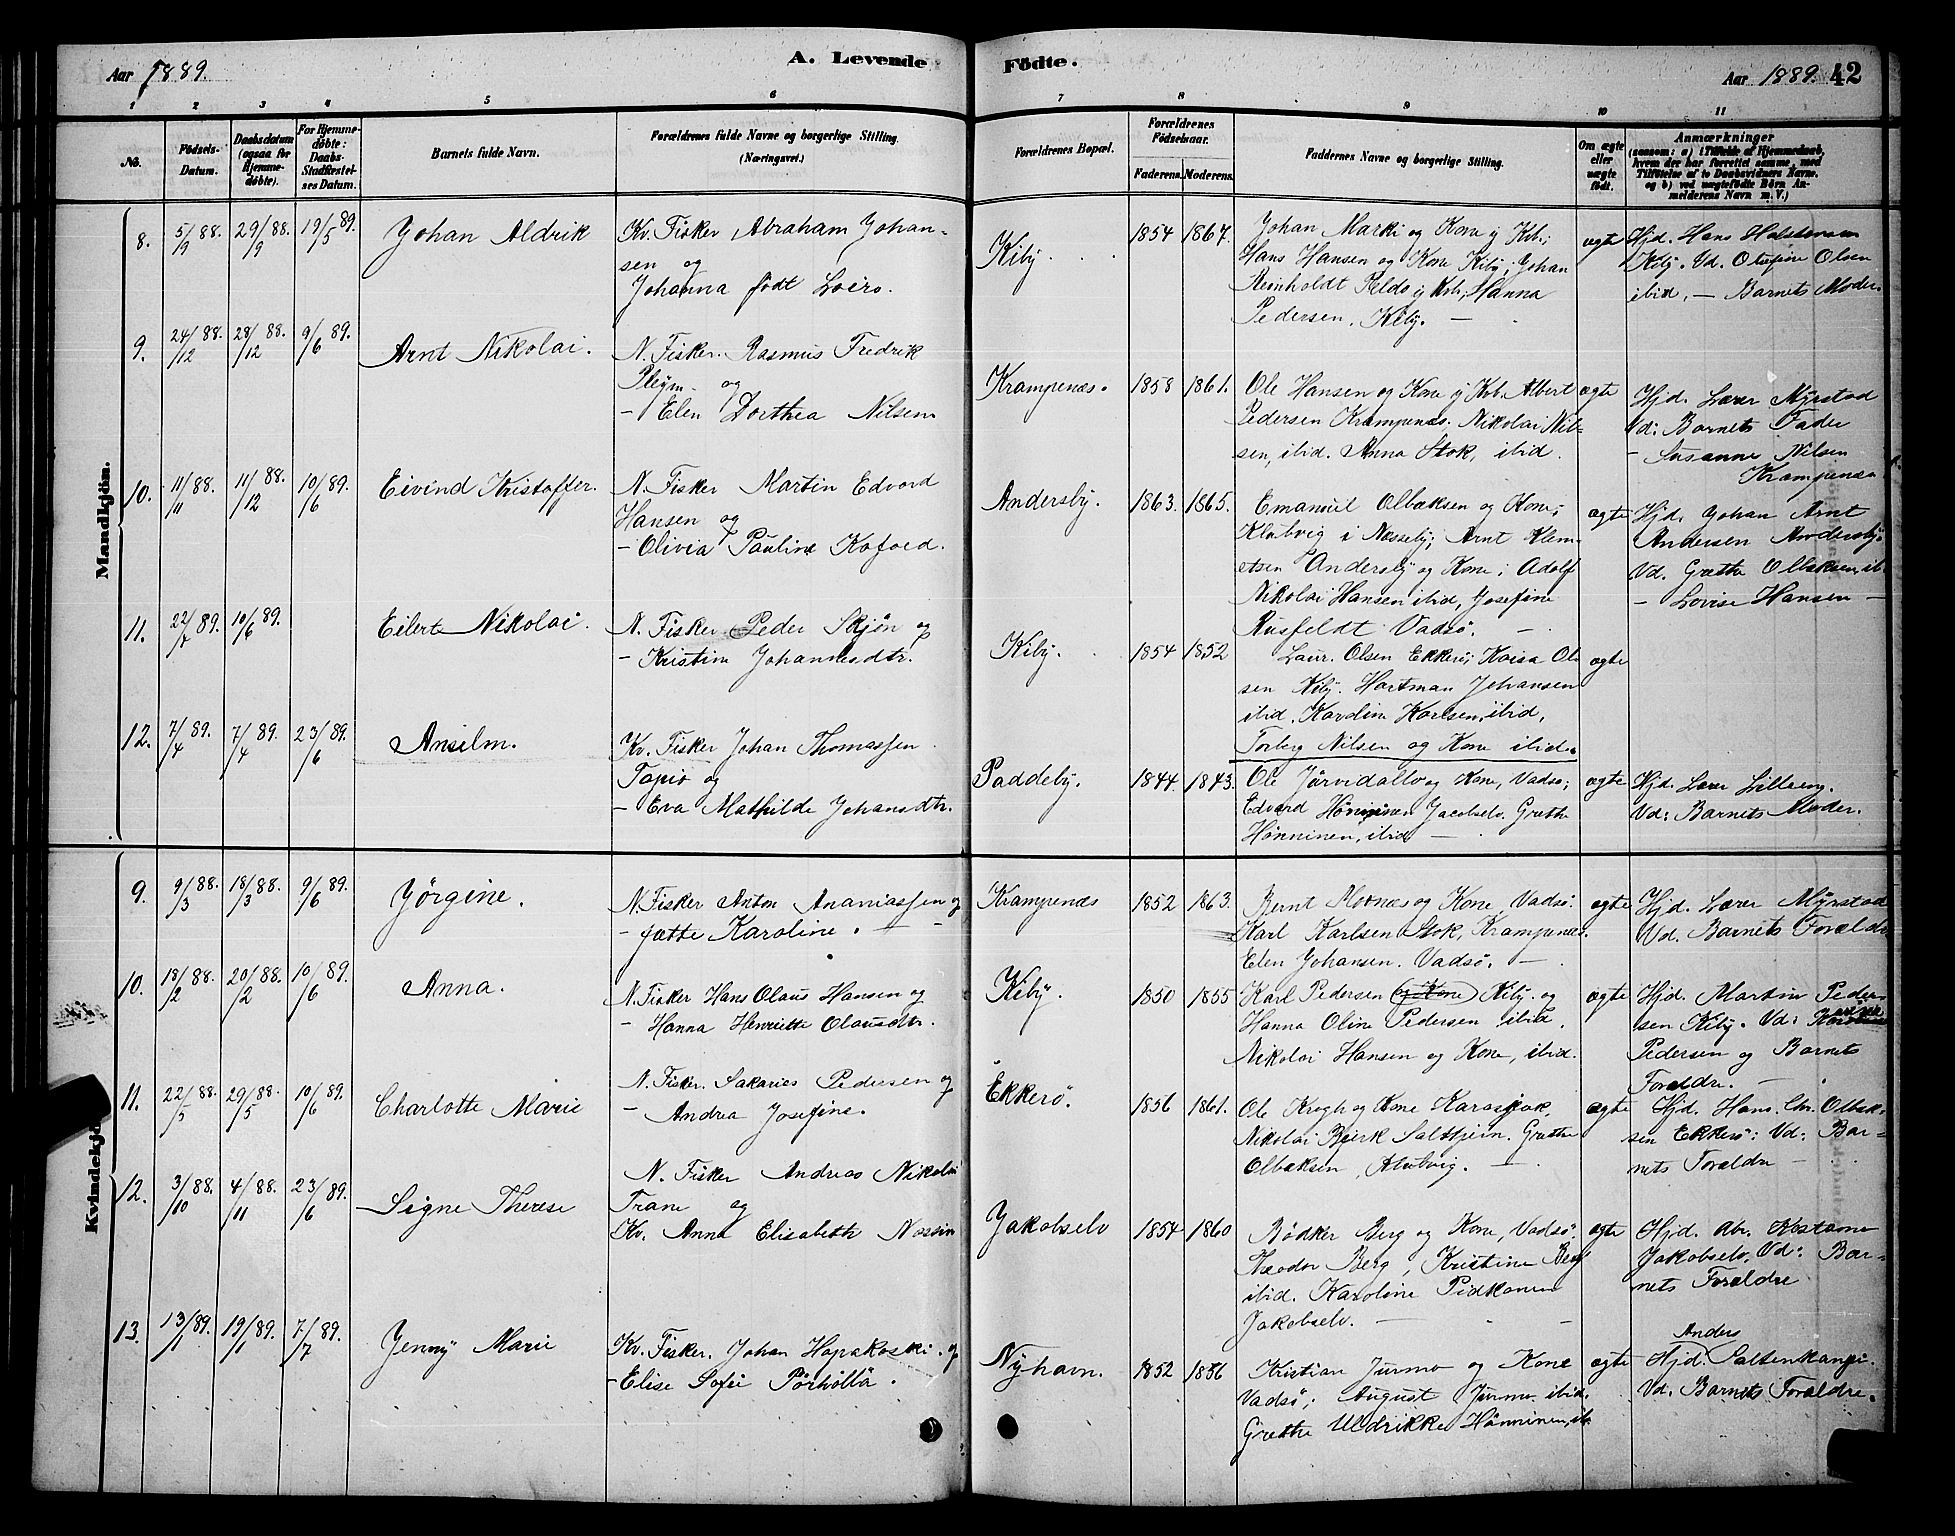 Aar 1889.
A. Levende
Fødte.
Aar 1889. 42
1 2 3 4 5 6 7 8 9 10 11
No. Fødsels-Datum. Daabsdatum (ogsaa for Hjemme-døbte). For Hjemme-døbte: Daabs-Stadfæstel-ses Datum. Barnets fulde Navn. Forældrenes fulde Navne og borgerlige Stilling. (Næringsvei.) Forældrenes Bopæl. Forældrenes Fødselsaar. Faderens. Moderens. Faddernes Navne og borgerlige Stilling. Om ægte eller uægte født.
Anmærkninger
(saasom: a) i Tilfælde af Hjemmedaab,
hvem der har forrettet samme, med
Tilføielse af to Daabsvidners Navne.
og b) ved uægtefødte Børn An-
melderens Navn m. V.)
Mandkjøn.
8. 5/9 88. 29/9 88. 19/5 89. Johan Aldrik
Kv. Fisker Abraham Johan-
sen og
Johanna født Loiro.
Kiby. 1854 1867.
Johan Marki og Kone ij Kib;
Hans Hansen og Kone Kiby; Johan
Reinholdt Peldo ij Kvb; Hanna
Pedersen, Kiby.
ægte
Hjd. Hans Halstensen
Kiby. Vd. Olufine Olsen
ibid, — Barnets Moder.
9. 24/12 88. 28/12 88. 9/6 89. Arnt Nikolai.
N. Fisker. Rasmus Fredrik
Pleym. og
- Elen Dorthea Nilsen
Krampenæs. 1858 1861.
Ole Hansen og Kone ij Kvb. Albert
Pedersen Krampenæs; Nikolai Nil-
sen, ibid. Anna Stok, ibid.
ægte
Hjd. Lærer Myrstad
Vd: Barnets Fader
- Susanne Nilsen
Krampenæs
10. 11/11 88. 11/12 88. 10/6 89. Eivind Kristoffer.
N. Fisker Martin Edvard
Hansen og
- Olivia Pauline Kofoed.
Andersby. 1863. 1865.
Emanuel Olbæksen og Kone;
Klubvig i Næsseby; Arnt Klem-
etsen Andersby og Kone; Adolf
Nikolai Hansen ibid, Josefine
Rusfeldt Vadsø. —
ægte
Hjd. Johan Arnt
Andersen Andersby.
Vd. Grethe Olbæksen, ib
- Lovise Hansen —
11. 89. 10/6 89. Eilert Nikolai.
N. Fisker Peder Skjøn og
- Kristine Johannesdtr.
Kiby. 1854 1852
Laur. Olsen Ekkerø; Kaisa Ol-
sen Kiby. Hartman Johansen
ibid. Karoline Karlsen, ibid,
Torberg Nilsen og Kone ibid.
ægte
12. 7/4 89. 7/4 89. 23/6 89. Anselm.
Kv. Fisker Johan Thomassen
Tapio og
- Eva Mathilde Johansdtr.
Paddeby. 1844. 1843.
Ole Järvidallo og Kone, Vadsø;
Edvard Hønninen Jacobselv. Grethe
Hønninen, ibid —
ægte
Hjd. Lærer Lilleeng.
Vd: Barnets Moder.
Kvindekjø
9. 9/3 88. 18/3 88. 9/6 89. Jørgine.
N. Fisker Anton Ananiassen og
- Jette Karoline. —
Krampenæs 1852 1863.
Bernt Movnæs og Kone, Vadsø.
Karl Karlsen Stok, Krampenæs.
Elen Johansen. Vadsø. —
ægte
Hjd. Lærer Myrstad
Vd. Barnets Forældr
10. 18/2 88. 20/2 88. 10/6 89. Anna.
N. Fisker Hans Olaus Hansen og
- Hanna Henriette Olausdtr.
Kiby. 1850 1855
Karl Pedersen (og Kone) Kiby. og
Hanna Oline Pedersen ibid.
Nikolai Hansen og Kone, ibid.
ægte
Hjd. Martin Peder-
sen Kiby. Vd:
Pedersen og Barnets
Forældre. —
11. 22/5 88. 29/5 88. 10/6 89. Charlotte Marie
N. Fisker. Sakarias Pedersen og
- Andrea Josefine.
Ekkerø. 1856 1861.
Ole Krogh og Kone Karasjok,
Nikolai Bjerk Saltheim. Grethe
Olbæksen, Klubvig. —
ægte
Hjd. Hans. Chr. Olbæk-
sen Ekkerø: Vd: Bar-
nets Forældre —
12. 3/10 88. 4/11 88. 23/6 89. Signe Therese
N. Fisker Andreas Nikolai
Trane og
Kv. Anna Elisabeth Nossin
Jakobselv 1854 1860
Bødker Berg og Kone, Vadsø.
Theodor Berg, Kristine Berg
ibid. Karoline Pidkonen
Jakobselv. —
ægte
Hjd. Abr. Kostamo
Jakobselv. Vd: Bar-
nets Forældre
13. 13/1 89. 19/1 89. 7/7 89. Jenny Marie
Kv. Fisker. Johan Hapakoski. og
- Elise Sofie Pörhöllä.
Nyhavn. 1852 1856
Kristian Jurmo og Kone
Vadsø; August Jurmo. ibid.
Grethe Uldrikke Hønninen, ib.
ægte
Anders
Hjd. Saltenkangi.
Vd. Barnets Forældre.